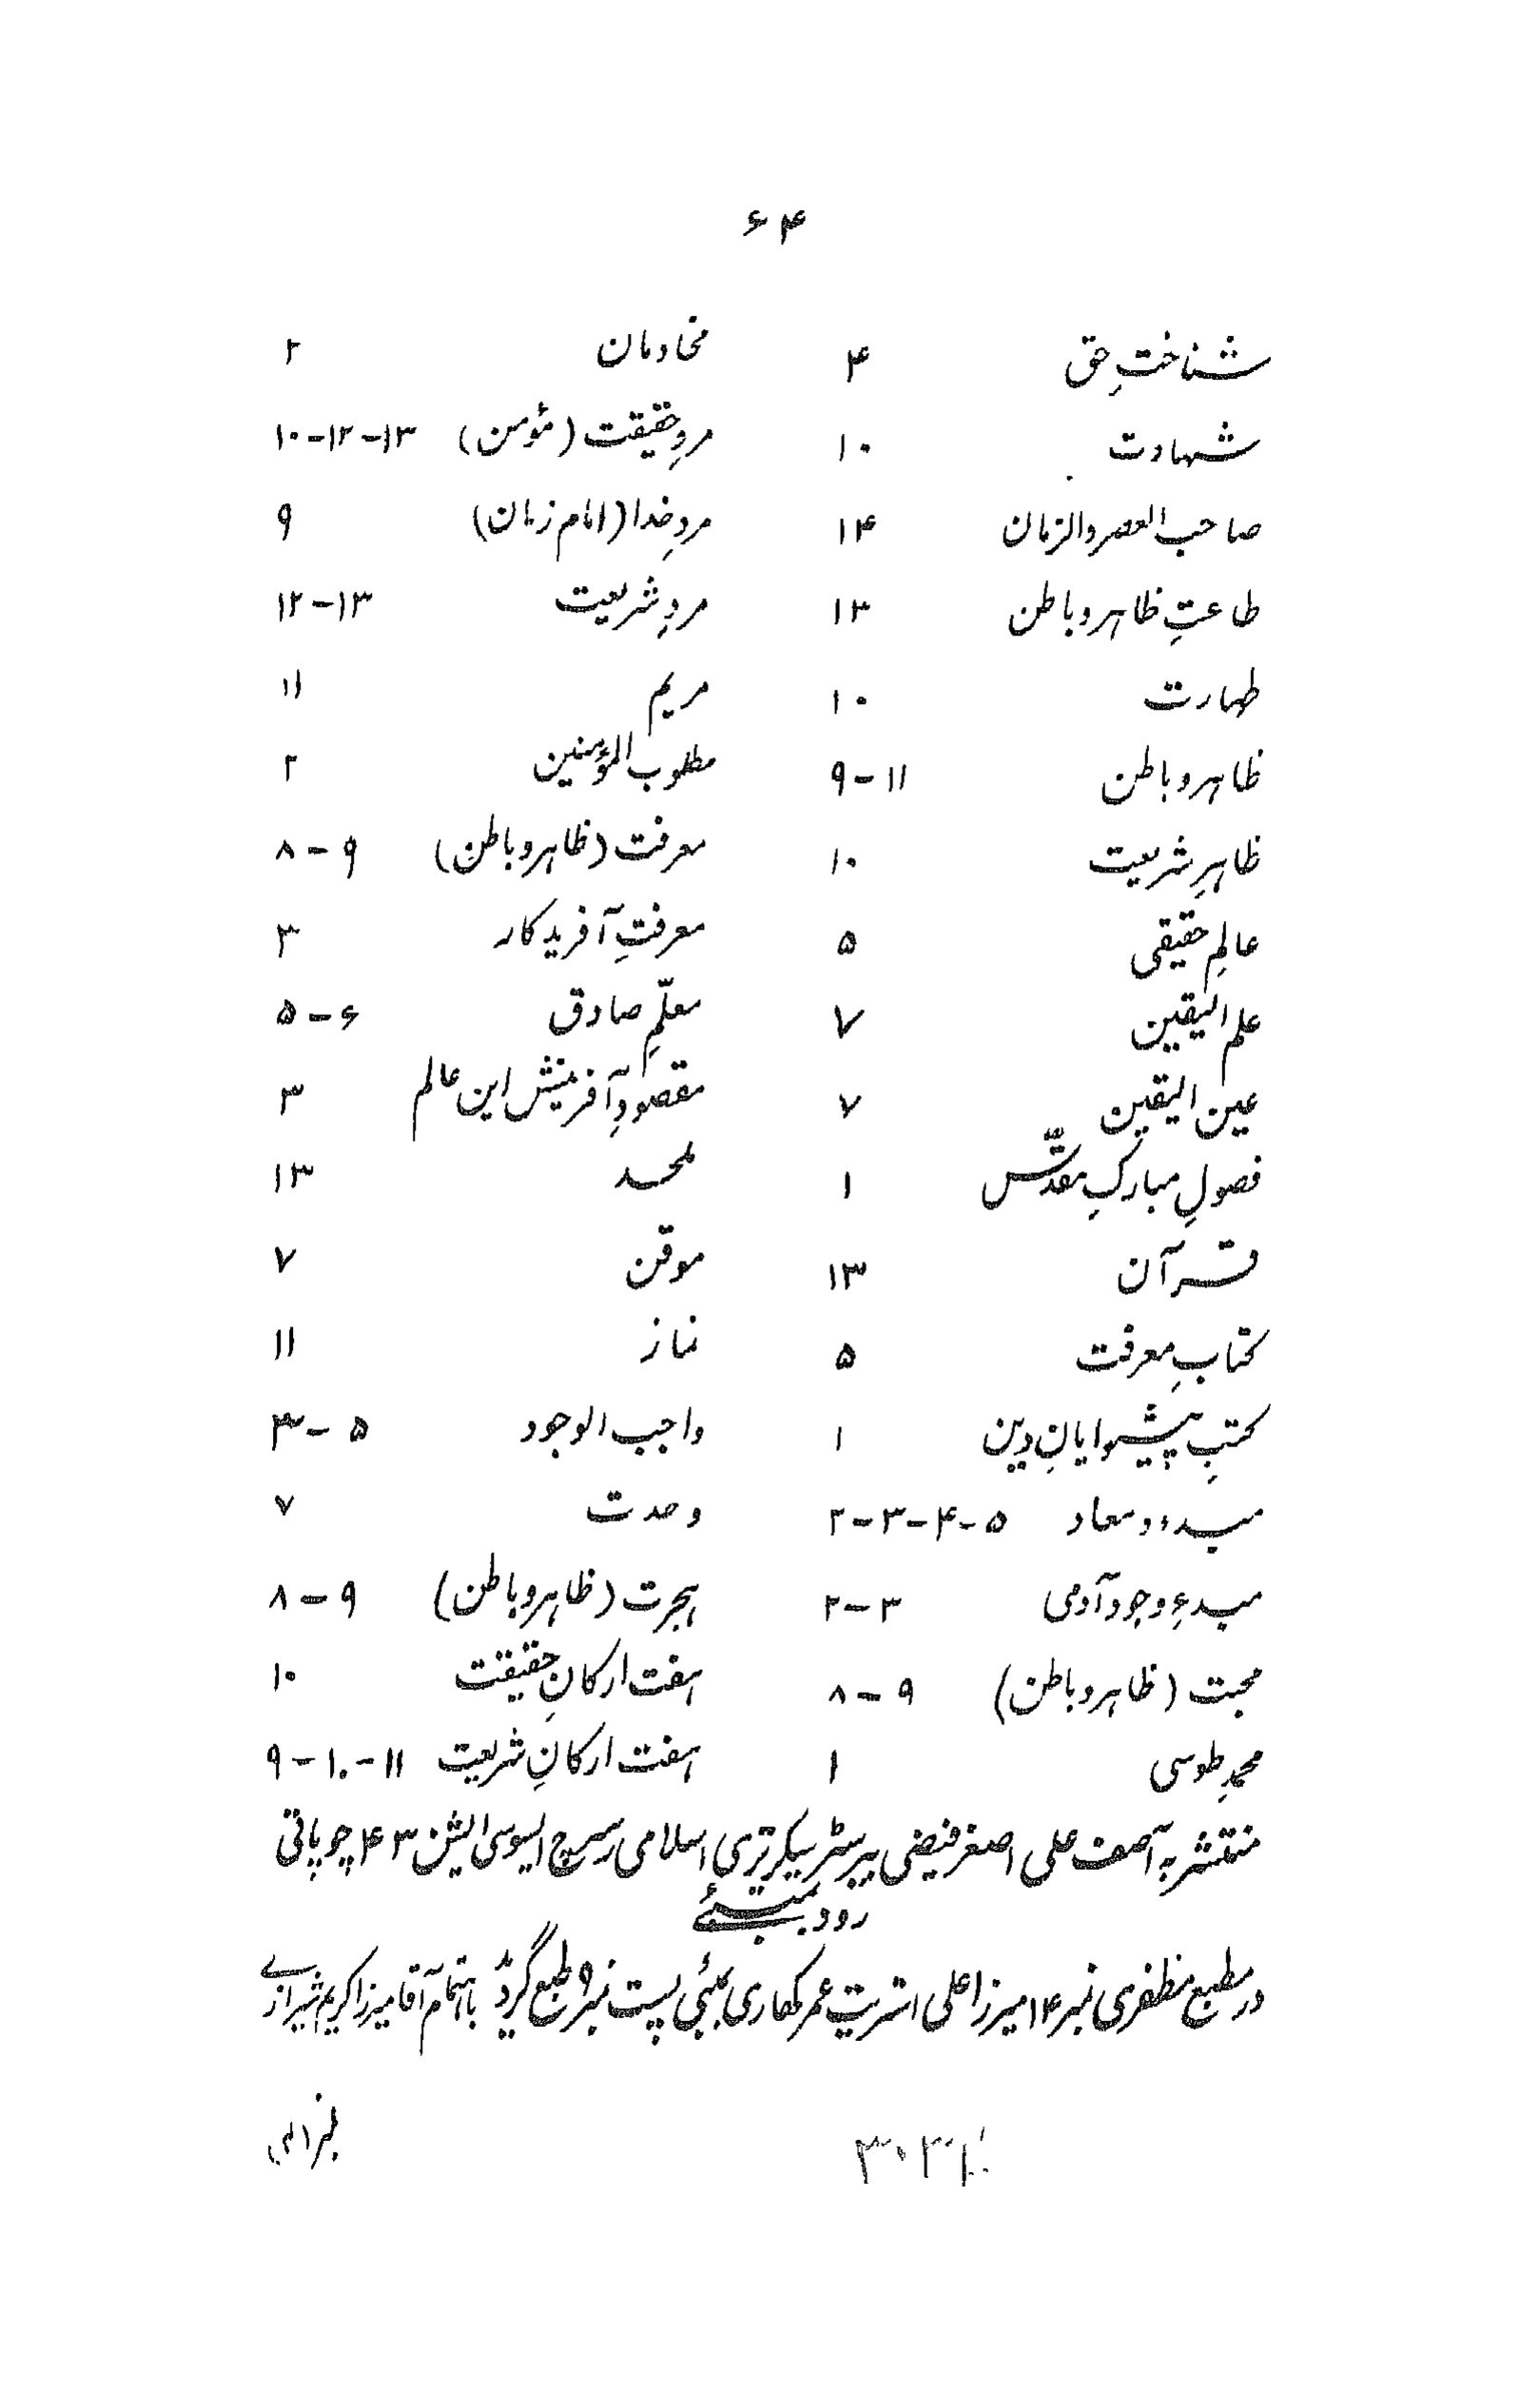 ۶۴
شناختِ حق ۴
شهادت ۱۰
صاحب العصر والزمان ۱۴
طاعتِ ظاهر و باطن ۱۳
طهارت ۱۰
ظاهر و باطن ۹-۱۱
ظاهرِ شریعت ۱۰
عالمِ حقیقی ۵
علم الیقین ۷
عین الیقین ۷
فصولِ مبارکِ مقدّس ۱
قرآن ۱۳
کتابِ معرفت ۵
کتبِ پیشوایانِ دین ۱
مبدء و معاد ۲-۳-۴-۵
مبدءِ وجود آدمی ۲-۳
محبت (ظاهر و باطن) ۸-۹
محمدِ طوسی ۱
مخادمان ۲
مردِ حقیقت (مؤمن) ۱۰-۱۲-۱۳
مردِ خدا (امام زمان) ۹
مردِ شریعت ۱۲-۱۳
مریم ۱۱
مطلوب المؤمنین ۲
معرفت (ظاهر و باطن) ۸-۹
معرفتِ آفریدگار ۳
معلّمِ صادق ۵-۶
مقصودِ آفرینش این عالم ۳
ملحد ۱۳
موقن ۷
نماز ۱۱
واجب الوجود ۳-۵
وحدت ۷
هجرت (ظاهر و باطن) ۸-۹
هفت ارکانِ حقیقت ۱۰
هفت ارکانِ شریعت ۹-۱۰-۱۱
منتشر به آصف علی اصغر فیضی بیرسٹر سیکرتری اسلامی رسرچ ایسوسی ایشن ۴۳ چوپاتی
رود بمبئے
در مطبع مظفری نمبر ۱۴ میرزا علی استریت عمرکھاری بمبئی پست نمبر ۹ طبع گردید باهتمام آقا میرزا کریم شیرازے